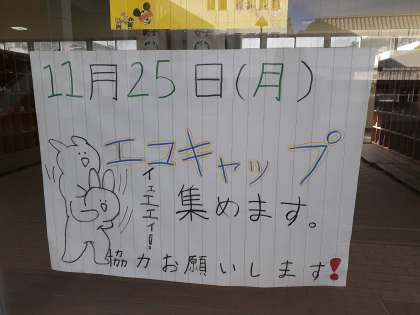 11月25日(月)
エコキャップ
イェエエィ!
集めます。
協力お願いします!